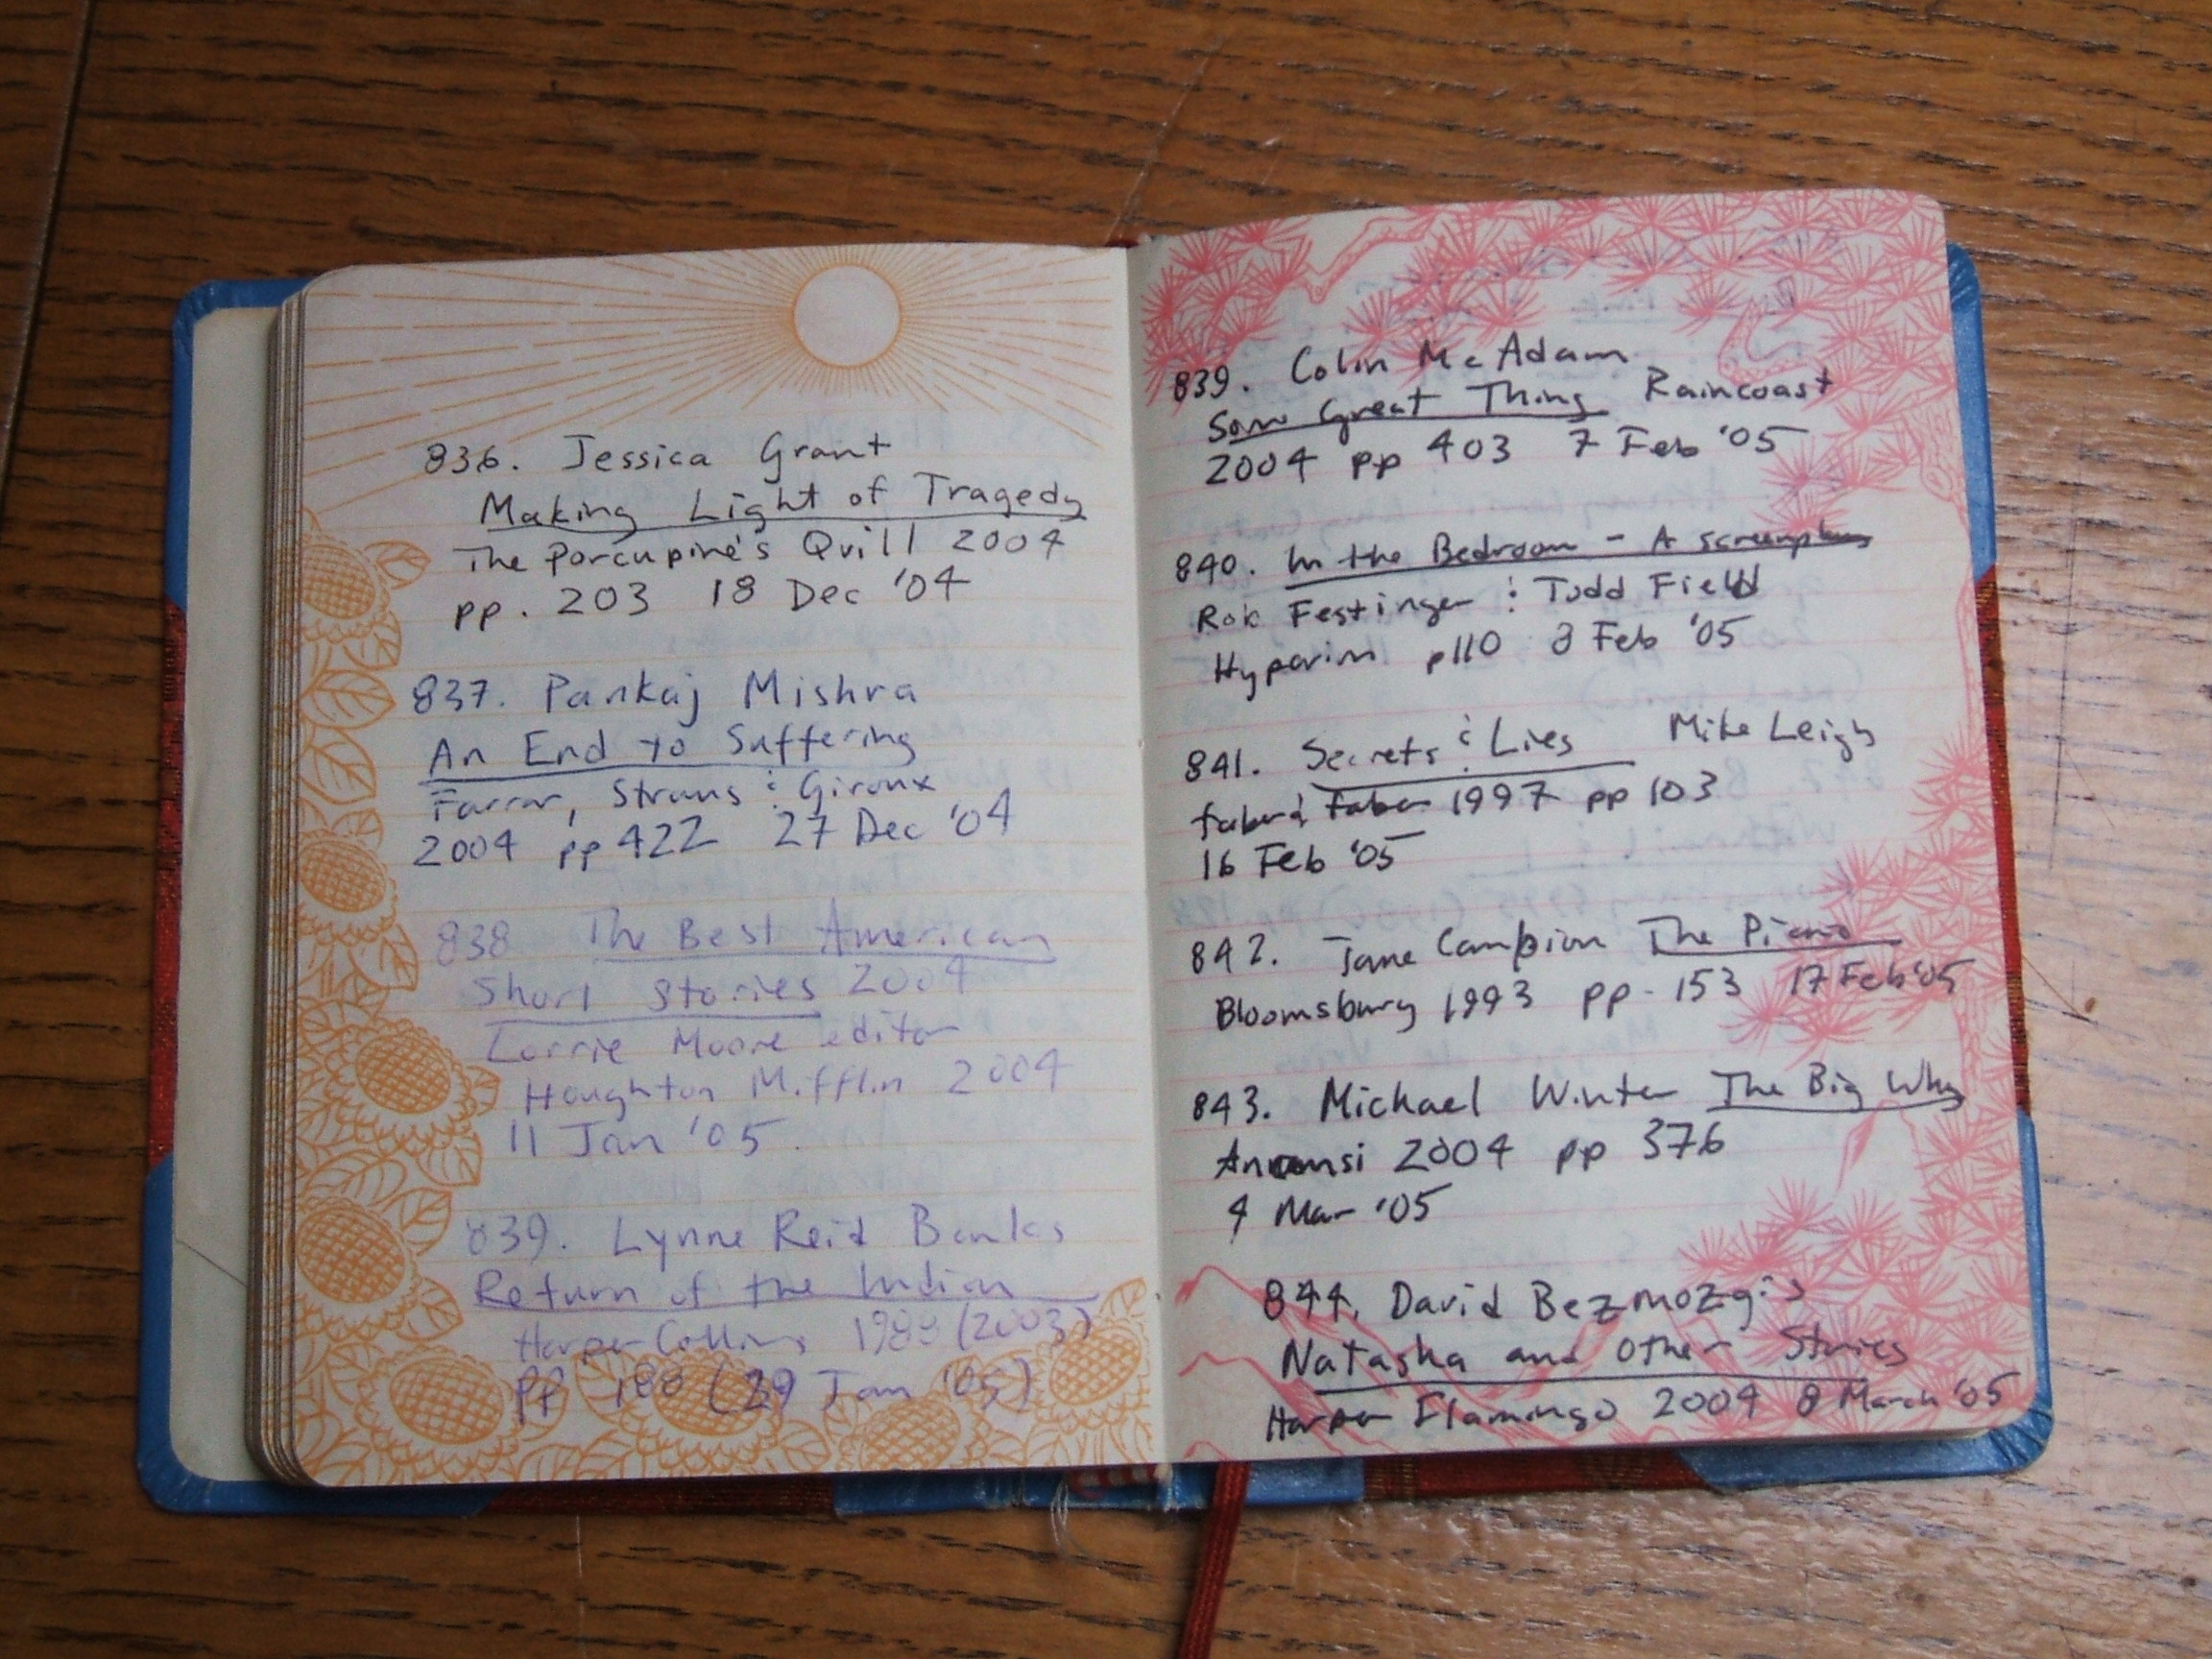 836. Jessica Grant
Making Light of Tragedy
The Porcupine's Quill 2004
pp. 203 18 Dec '04
837. Pankaj Mishra
An End to Suffering
Farrar, Straus & Giroux
2004 pp 422 27 Dec '04
838. The Best American
Short Stories 2004
Lorrie Moore editor
Houghton Mifflin 2004
11 Jan '05.
839. Lynne Reid Banks
Return of the Indian
HarperCollins (2003)
pp (29 Jan '05)
839. Colin McAdam
Some Great Thing Raincoast
2004 pp 403 7 Feb '05
840. In the Bedroom - A screenplay
Rob Festinger & Todd Field
p110 8 Feb '05
841. Secrets & Lies Mike Leigh
faber & faber 1997 pp 103
16 Feb '05
842. Jane Campion The Piano
Bloomsbury 1993 pp. 153 17 Feb '05
843. Michael Winter The Big Why
Anansi 2004 pp 376
4 Mar '05
844. David Bezmozgis
Natasha and Other Stories
Harper Flamingo 2004 8 March '05